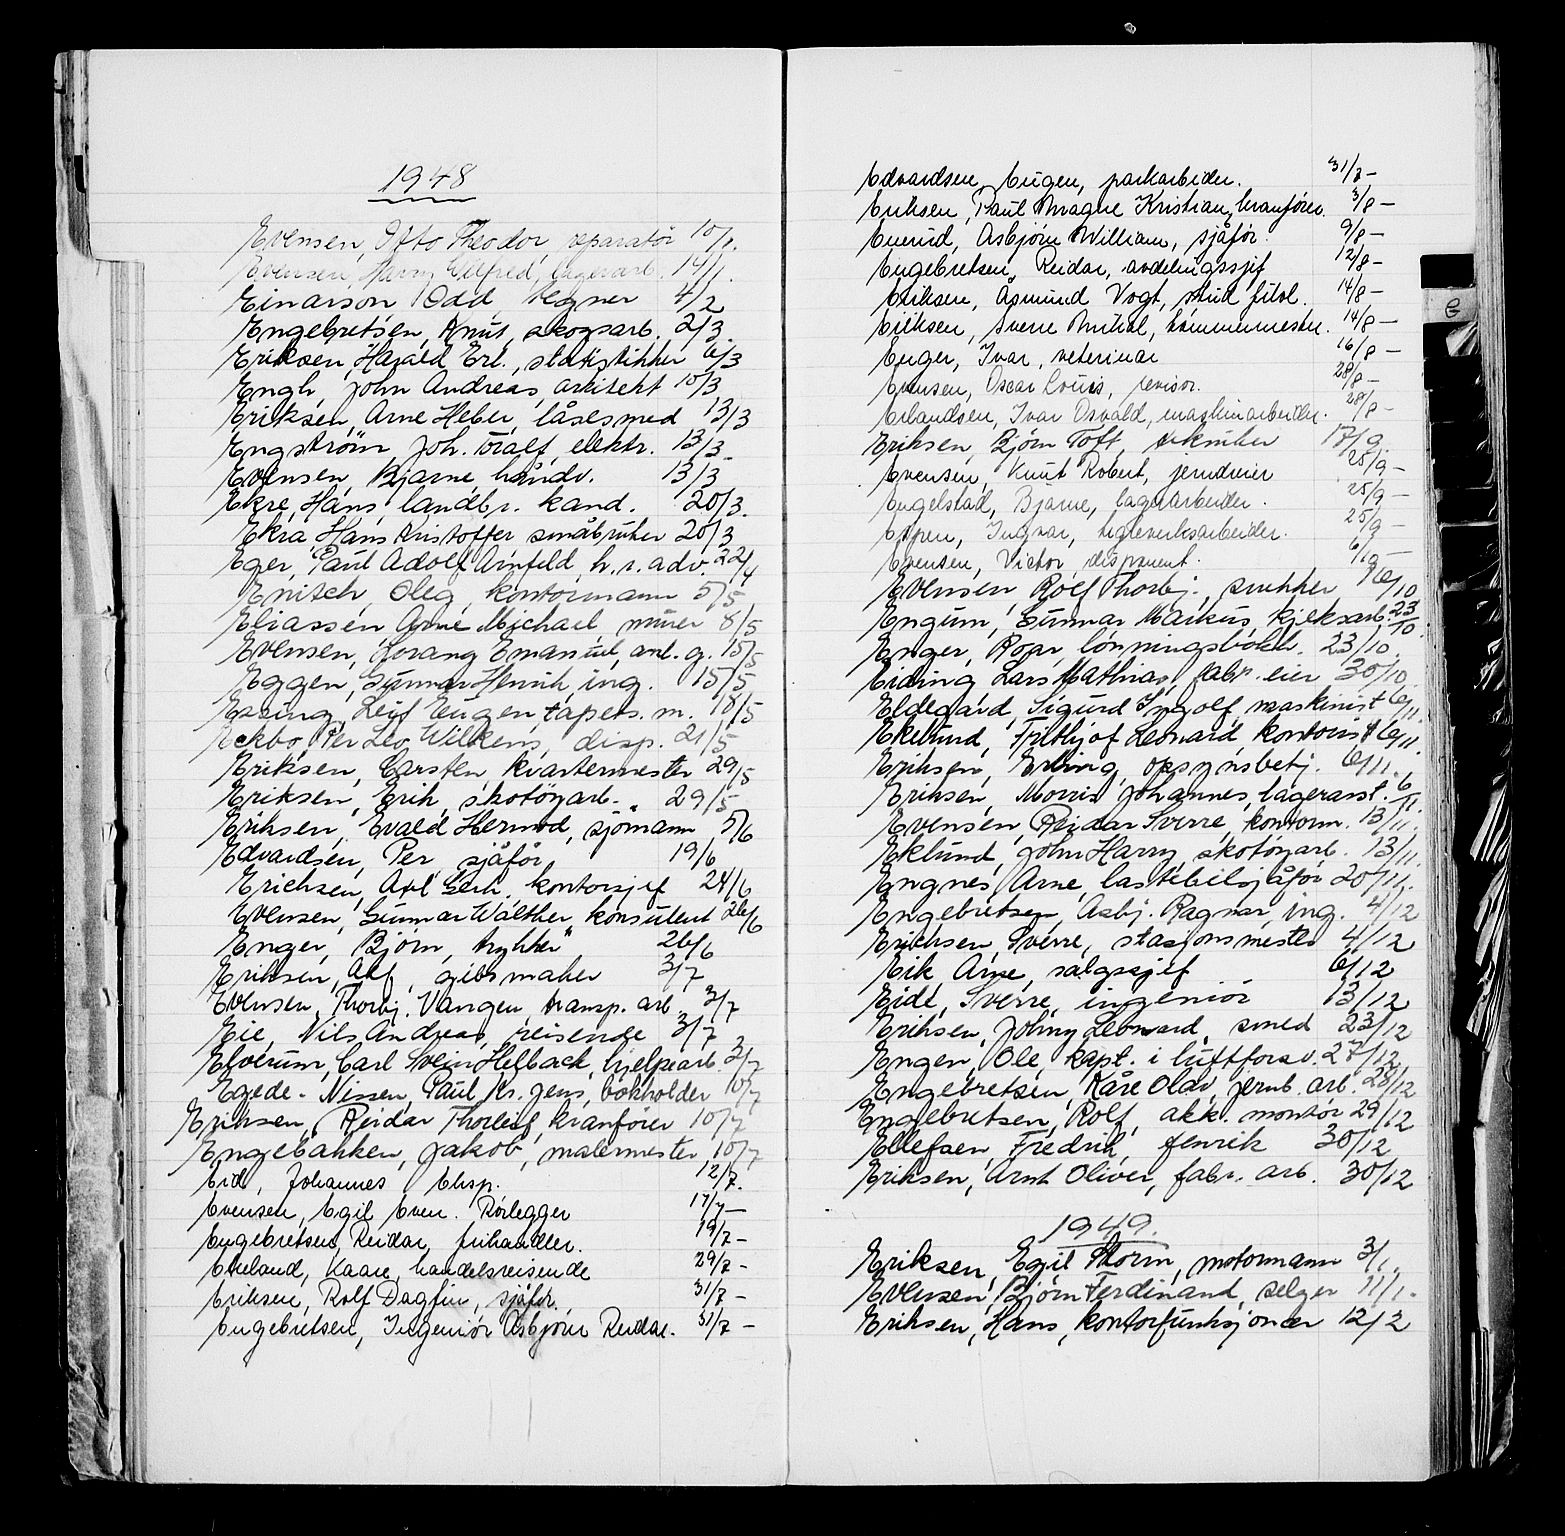 1948
Evensen, Otto Theodor, reparatør 10/1.
Evensen, Harry Wilfred, lagerarb. 14/1.
Einarson Odd, tegner 4/2
Engebretsen, Knut, skogsarb. 2/3
Eriksen, Harald Erl., statistikker 6/3
Engh, John Andreas, arkitekt 10/3
Eriksen, Arne Heber, låsesmed 13/3
Engstrøm, Joh. Toralf, elektr. 13/3
Evensen, Bjarne, håndv. 13/3
Ekre, Hans, landbr. kand. 20/3
Ekra, Hans Kristoffer småbruker 20/3
Eger, Paul Adolf Arnfeld, h.r.adv. 22/4
Enitch, Oleg, kontormann 5/5
Eliassen, Arne Michael, murer 8/5
Evensen, Lorang Emanuel, anl. g. 15/5
Eggen, Gunnar Henrik, ing. 15/5
Essing, Leif Eugen, tapets. m. 18/5
Eckbo, Per Leo Wilkens, disp. 21/5
Eriksen, Carsten, kvartermester 29/5
Eriksen, Erik, skotøyarb. 29/5
Eriksen, Evald Hermod, sjømann 5/6
Edvardsen, Per, sjåfør 19/6
Erichsen, Axl Gerh., kontorsjef 24/6
Evensen, Gunnar Walther, konsulent 26/6
Enger, Bjørn, trykker 26/6
Eriksen, Alf, gipsmaker 3/7
Evensen, Thorbj. Vangen, transp. arb. 3/7
Eie, Nils Andreas, reisende 3/7
Elverum, Carl Svein Helback, hjelpearb. 3/7
Egede-Nissen, Paul Kr. Jens, bokholder 10/7
Eriksen, Reidar Thorleif, kranfører 10/7
Engebakken, Jakob, malermester 10/7
Eid, Johannes, eksp. 12/7.
Evensen, Egil Even. Rørlegger 17/7 —
Engebretsen, Reidar, frihandler. 19/7 —
Ekeland, Kaare, handelsreisende 29/7 —
Eriksen, Rolf Dagfin, sjåfør. 31/7 —
Engebretsen, Ingeniør Asbjørn Reidar. 31/7 —
Edvardsen, Eugen, parkarbeider. 31/7 —
Eriksen, Paul Magne Kristian, kranfører. 3/8 —
Enerud, Asbjørn William, sjåfør. 9/8 —
Engebretsen, Reidar, avdelingssjef 12/8 —
Eriksen, Åsmund Vogt, stud. filol. 14/8 —
Eriksen, Sverre Mikal, tømmermester. 14/8 —
Enger, Ivar, veterinær 16/8 —
Evensen, Oscar Louis, revisor. 28/8 —
Erlandsen, Ivar Osvald, maskinarbeider. 28/8 —
Eriksen, Bjørn Toft, tekniker 17/9
Evensen, Knut Robert, jerndreier 25/9 —
Engelstad, Bjarne, lagerarbeider. 25/9 —
Espen, Ingvar, teglverksarbeider. 25/9 —
Evensen, Victor, disponent. 6/10 —
Evensen, Rolf Thorbj., snekker 16/10
Engum, Gunnar Markus, kjeksarb. 23/10.
Enger, Roar, lønningsbokh. 23/10.
Eiding, Lars Mathias, fabr. eier 30/10.
Eldegard, Sigurd Ingolf, maskinist 6/11.
Eklund, Frithjof Leonard, kontorist 6/11.
Eriksen, Erling, opsynsbetj. 6/11.
Eriksen, Morris Johannes, lagerasst. 6/11.
Evensen, Reidar Sverre, kontorm. 13/11.
Eklund, John Harry, skotøyarb. 13/11.
Engnes, Arne, lastebilsjåfør 20/11.
Engebretsen, Asbj. Ragnar, ing. 4/12
Erichsen, Sverre, stasjonsmester 4/12
Eik, Arne, salgssjef 6/12
Eide, Sverre, ingeniør 13/12
Eriksen, Johny Leonard, smed 23/12
Engen, Ole, kapt. i luftforsv. 27/12
Engebretsen, Kåre Olav, jernb. arb. 28/12
Engebretsen, Rolf, akk. montør 29/12
Ellefsen, Fredrik, fenrik 30/12
Eriksen, Arnt Oliver, fabr. arb. 30/12
1949.
Eriksen, Egil Thorm, motormann 3/1.
Evensen, Bjørn Ferdinand, selger 11/1.
Eriksen, Hans, kontorfunksjonær 12/2
e